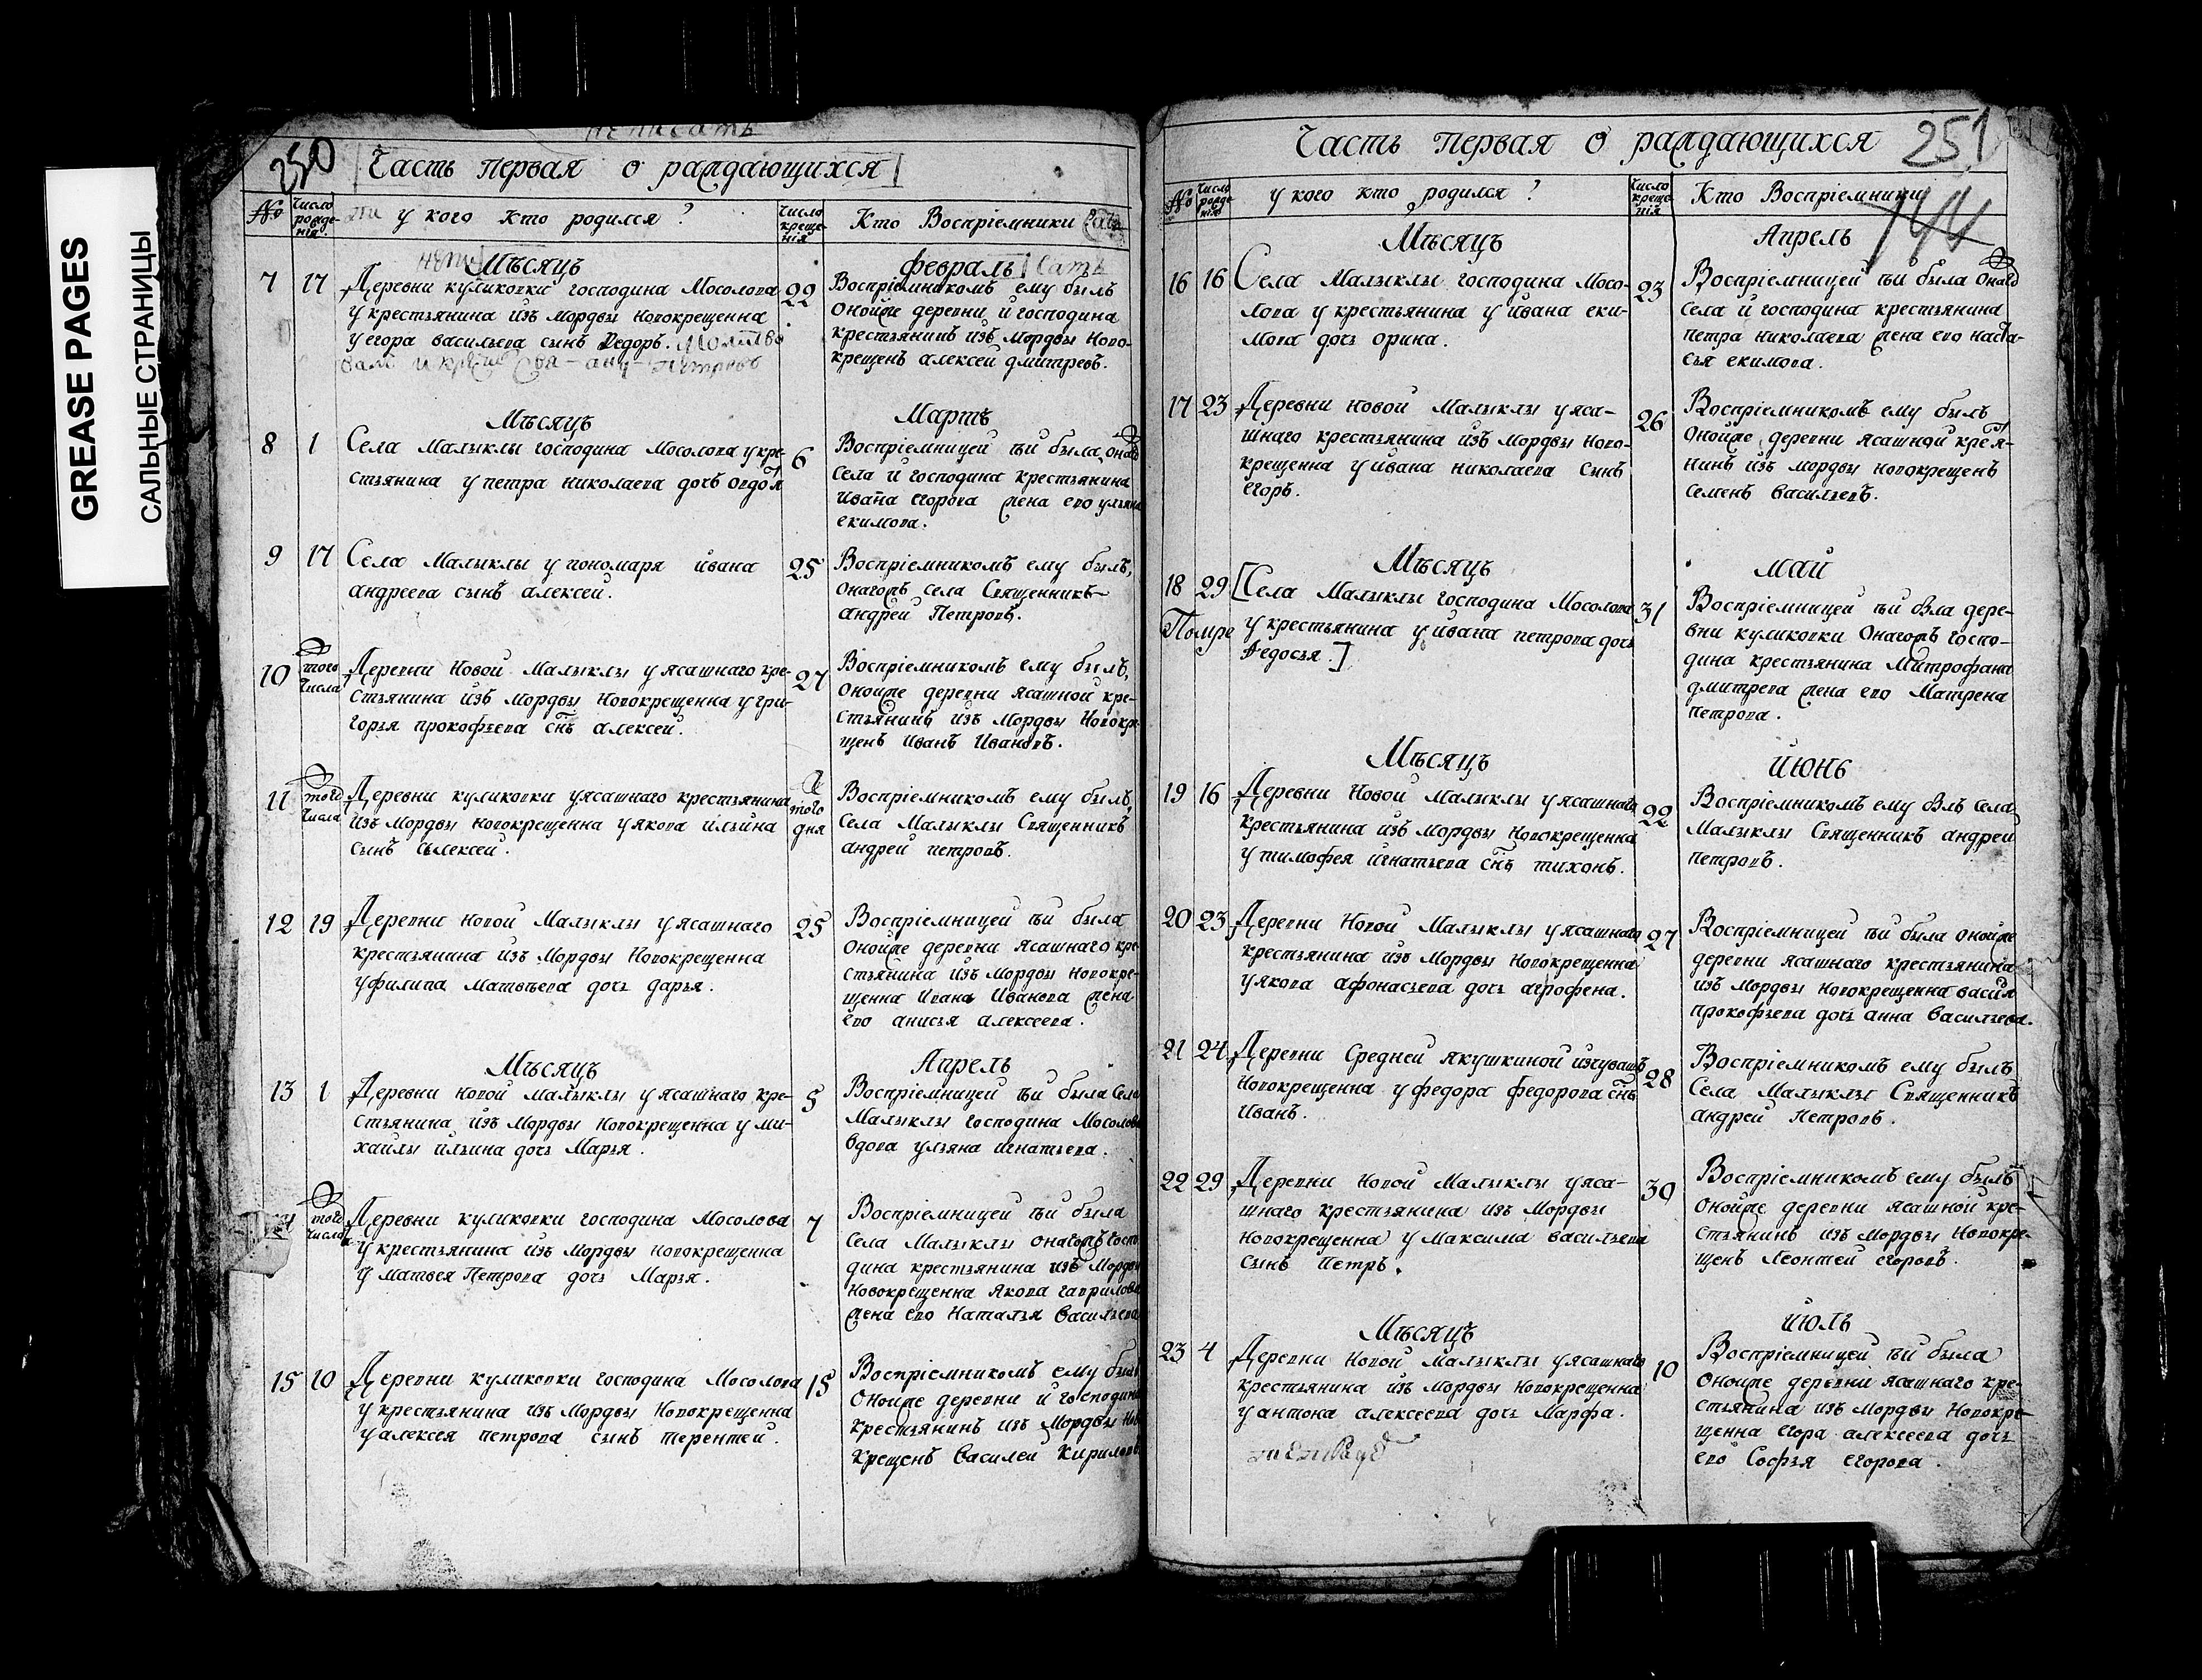 GREASE PAGES
САЛЬНЫЕ СТРАНИЦЫ
250
Часть первая о раждающихся
№
Число рожде-нія.
у кого кто родился?
Число креще-нія
Кто Воспріемники
Мѣсяцъ
февраль
7
17
Деревни куликовки господина Мосолова
у крестьянина изъ мордвы новокрещенна
у егора васильева сынъ Ѳедоръ.
22
Воспріемникомъ ему былъ
онойже деревни, и господина
крестьянинъ изъ мордвы ново-
крещенъ алексей дмитревъ.
Мѣсяцъ
Мартъ
8
1
Села Малыклы господина Мосолова у кре-
стьянина у петра николаева дочь овдотя
6
Воспріемницей ѣй была онаго
села и господина крестьянина
Ивана егорова жена его ульяна
екимова.
9
17
Села Малыклы у пономаря ивана
андреева сынъ алексей.
25
Воспріемникомъ ему былъ,
онагожъ села Священникъ
андрей Петровъ.
10
того числа
Деревни Новой Малыклы у ясашнаго кре-
стьянина изъ мордвы новокрещенна у гри-
горья прокофьева снъ алексей.
27
Воспріемникомъ ему былъ,
онойже деревни ясашной кре-
стьянинъ изъ мордвы новокре-
щенъ Иванъ Ивановъ.
11
того числа
Деревни куликовки у ясашнаго крестьянина
изъ мордвы новокрещенна у якова ильина
сынъ алексей.
того дня
Воспріемникомъ ему былъ,
Села Малыклы Священникъ
андрей петровъ.
12
19
Деревни новой Малыклы у ясашнаго
крестьянина изъ мордвы новокрещенна
у филипа Матвѣева дочь дарья.
25
Воспріемницей ѣй была
онойже деревни ясашнаго кре-
стьянина изъ мордвы новокре-
щенна Ивана Иванова жена
его анисья алексеева.
Мѣсяцъ
Апрель
13
1
Деревни новой малыклы у ясашнаго кре-
стьянина изъ мордвы новокрещенна у ми-
хаилы ильина дочь Марья.
5
Воспріемницей ѣй была Села
Малыклы господина Мосолова
вдова ульяна игнатьева.
того числа
Деревни куликовки господина Мосолова
у крестьянина изъ мордвы новокрещенна
у матвея Петрова дочь Марья.
7
Воспріемницей ѣй была
села Малыклы онагожъ госпо
дина крестьянина изъ мордвы
новокрещенна якова гаврилова
жена его Наталья васильева
15
10
Деревни куликовки господина Мосолова
у крестьянина изъ мордвы новокрещенна
у алексея петрова сынъ терентей.
15
Воспріемникомъ ему былъ
онойже деревни и господина
крестьянинъ изъ мордвы Ново
крещенъ василей кириловъ
251
144
Часть первая о раждающихся
№
Число рожде-нія
у кого кто родился?
Число креще-нія
Кто Воспріемники
Мѣсяцъ
Апрель
16
16
Села Малыклы господина Мосо-
лова у крестьянина у ивана еки-
мова дочь орина.
23
Воспріемницей ѣй была онаго
села и господина крестьянина
петра николаева жена его наста-
сья екимова.
17
23
Деревни новой малыклы у яса-
шнаго крестьянина изъ мордвы ново-
крещенна у ивана николаева сынъ
егоръ.
26
Воспріемникомъ ему былъ
онойже деревни ясашной кре-
нинъ изъ мордвы новокрещенъ
семенъ васильевъ.
Мѣсяцъ
май
18
29
Помре
[Села Малыклы господина Мосолова
у крестьянина у ивана петрова дочь
Ѳедосья.]
31
Воспріемницей ѣй бла дере-
вни куликовки онагожъ госпо-
дина крестьянина Митрофана
дмитрева жена его Матрена
петрова.
Мѣсяцъ
июнь
19
16
Деревни Новой Малыклы у ясашнаго
крестьянина изъ мордвы новокрещенна
у тимофея игнатьева снъ тихонъ.
22
Воспріемникомъ ему блъ села
Малыклы Священникъ андреи
петровъ.
20
23
Деревни Новой Малыклы у ясашнаго
крестьянина изъ мордвы новокрещенна
у якова афонасьева дочь агрофена.
27
Воспріемницей ѣй была онойже
деревни ясашнаго крестьянина
изъ мордвы новокрещенна васил
прокофьева дочь анна васильева.
21
24
Деревни Средней якушкиной изчувашъ
новокрещенна у федора федорова снъ
Иванъ.
28
Воспріемникомъ ему былъ
Села Малыклы Священникъ
андрей Петровъ.
22
29
Деревни новой Малыклы у яса-
шнаго крестьянина изъ мордвы
новокрещенна у максима васильева
сынъ Петръ.
30
Воспріемникомъ ему былъ
онойже деревни ясашной кре-
стьянинъ изъ мордвы новокре-
щенъ леонтей егоровъ.
Мѣсяцъ
июль
23
4
Деревни новой малыклы у ясашнаго
крестьянина изъ мордвы новокрещенна
у антона алексеева дочь марфа.
10
Воспріемницей ѣй была
онойже деревни ясашнаго кре-
стьянина изъ мордвы новокре-
щенна егора алексеева дочь
его Софья егорова.